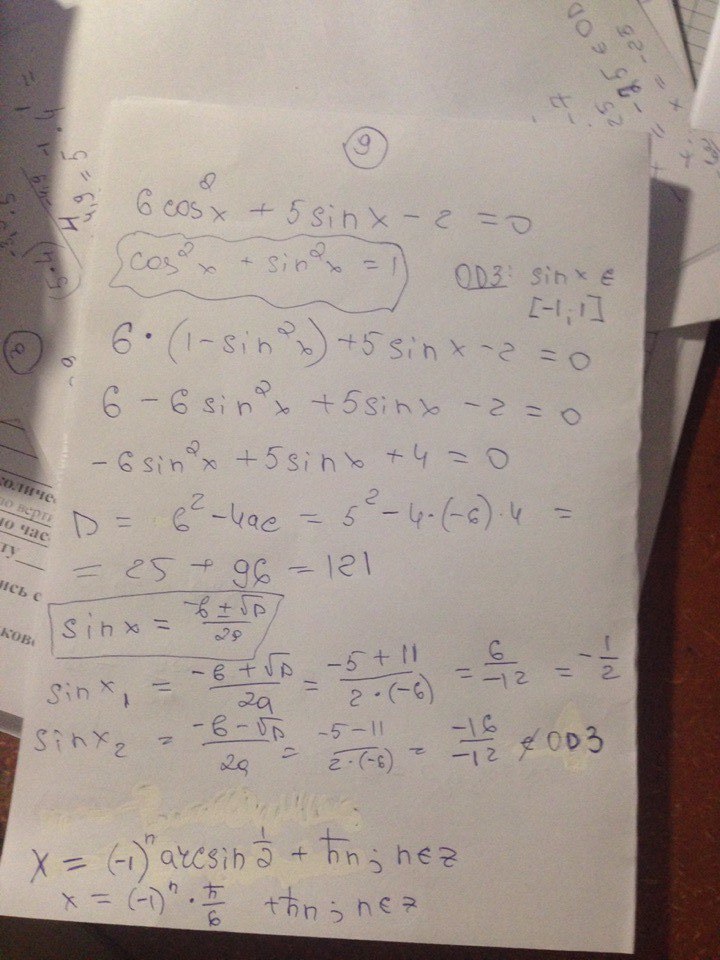 9
6cos²x + 5sinx - 2 = 0
cos²x + sin²x = 1
ОДЗ: sinx ∈
[-1,1]
6·(1-sin²x)+5sinx-2=0
6 - 6sin²x + 5sinx - 2 = 0
-6sin²x + 5sinx + 4 = 0
D = b²-4ac = 5²-4·(-6)·4 =
= 25 + 96 = 121
sinx = (-b±√D)/2a
sinx₁ = (-b+√D)/2a = (-5+11)/(2·(-6)) = 6/-12 = -1/2
sinx₂ = (-b-√D)/2a = (-5-11)/(2·(-6)) = -16/-12 ∉ ОДЗ
x = (-1)ⁿ arcsin 1/2 + πn; n∈z
x = (-1)ⁿ · π/6 + πn; n∈z
4,9=5